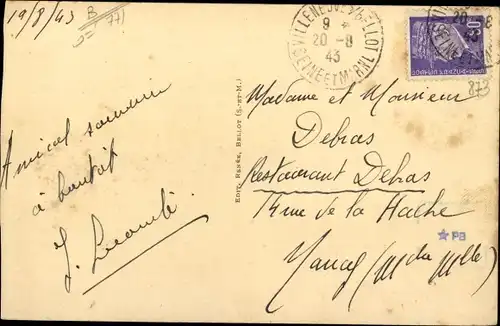 19/8/43
B
77)
VILLENEUVE S/BELLOT
9 *
20 - 8
43
(SEINE ET MARNE)
20 - 8
43
873
Madame et Monsieur
Debras
Restaurant Debras
rue de la Hache
Nancy (M. du Mlle)
★ PB
EDIT. RENÉE, BELLOT (S.-ET-M.)
Amical souvenir
à bientôt
J. Lecomte